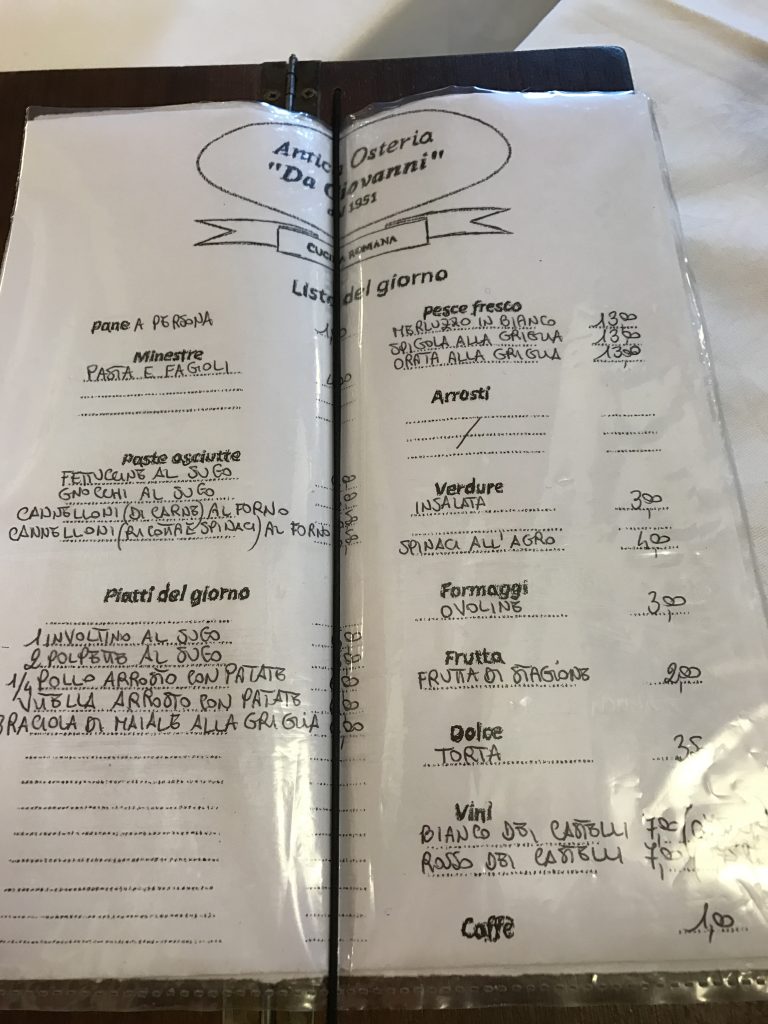 Antica Osteria
"Da Giovanni"
1951
CUCINA ROMANA
Lista del giorno
Pane A PERSONA
Minestre
PASTA E FAGIOLI
Paste asciutte
FETTUCCINE AL SUGO
GNOCCHI AL SUGO
CANNELLONI (DI CARNE) AL FORNO
CANNELLONI (RICOTTA E SPINACI) AL FORNO
Piatti del giorno
1 INVOLTINO AL SUGO
2 POLPETTE AL SUGO
1/4 POLLO ARROSTO CON PATATE
VITELLA ARROSTO CON PATATE
BRACIOLA DI MAIALE ALLA GRIGLIA
Pesce fresco
MERLUZZO IN BIANCO 13,00
SPIGOLA ALLA GRIGLIA 13,00
ORATA ALLA GRIGLIA 13,00
Arrosti
/
Verdure
INSALATA 3,00
SPINACI ALL'AGRO 4,00
Formaggi
OVOLINE 3,00
Frutta
FRUTTA DI STAGIONE 2,00
Dolce
TORTA 3,5
Vini
BIANCO DEI CASTELLI 7,00
ROSSO DEI CASTELLI 7,00
Caffè 1,00